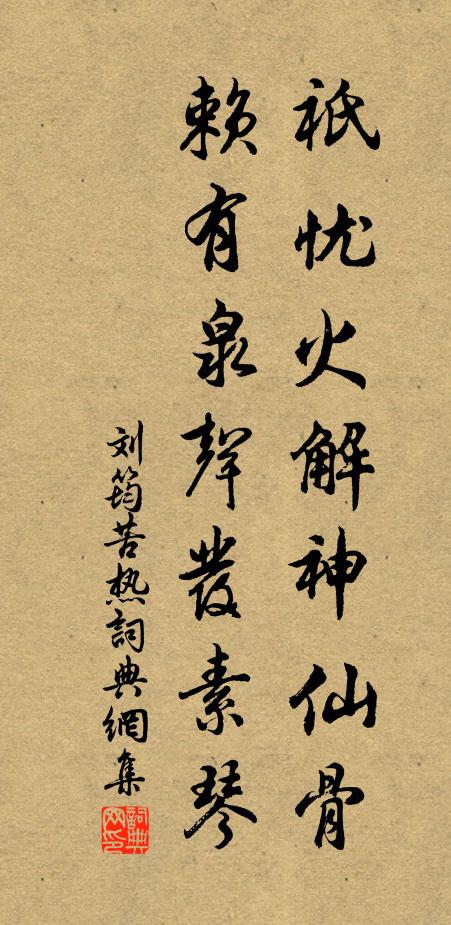 祇忧火解神仙骨
赖有泉聲發素琴
刘筠苦热詞典網集
詞典网印